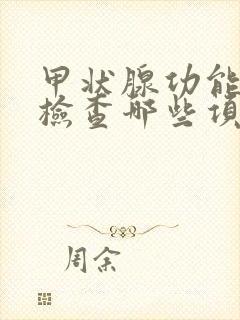 甲状腺功能
檢查哪些項
周余